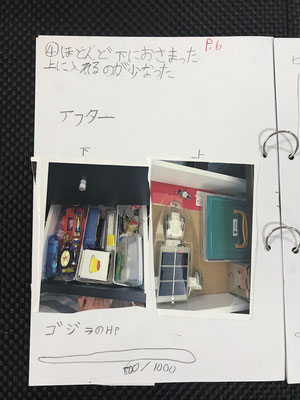 ④ほとんど下におさまった
P.6
上に入れるのが少なった
アフター
下
上
ゴジラのHP
600/1000